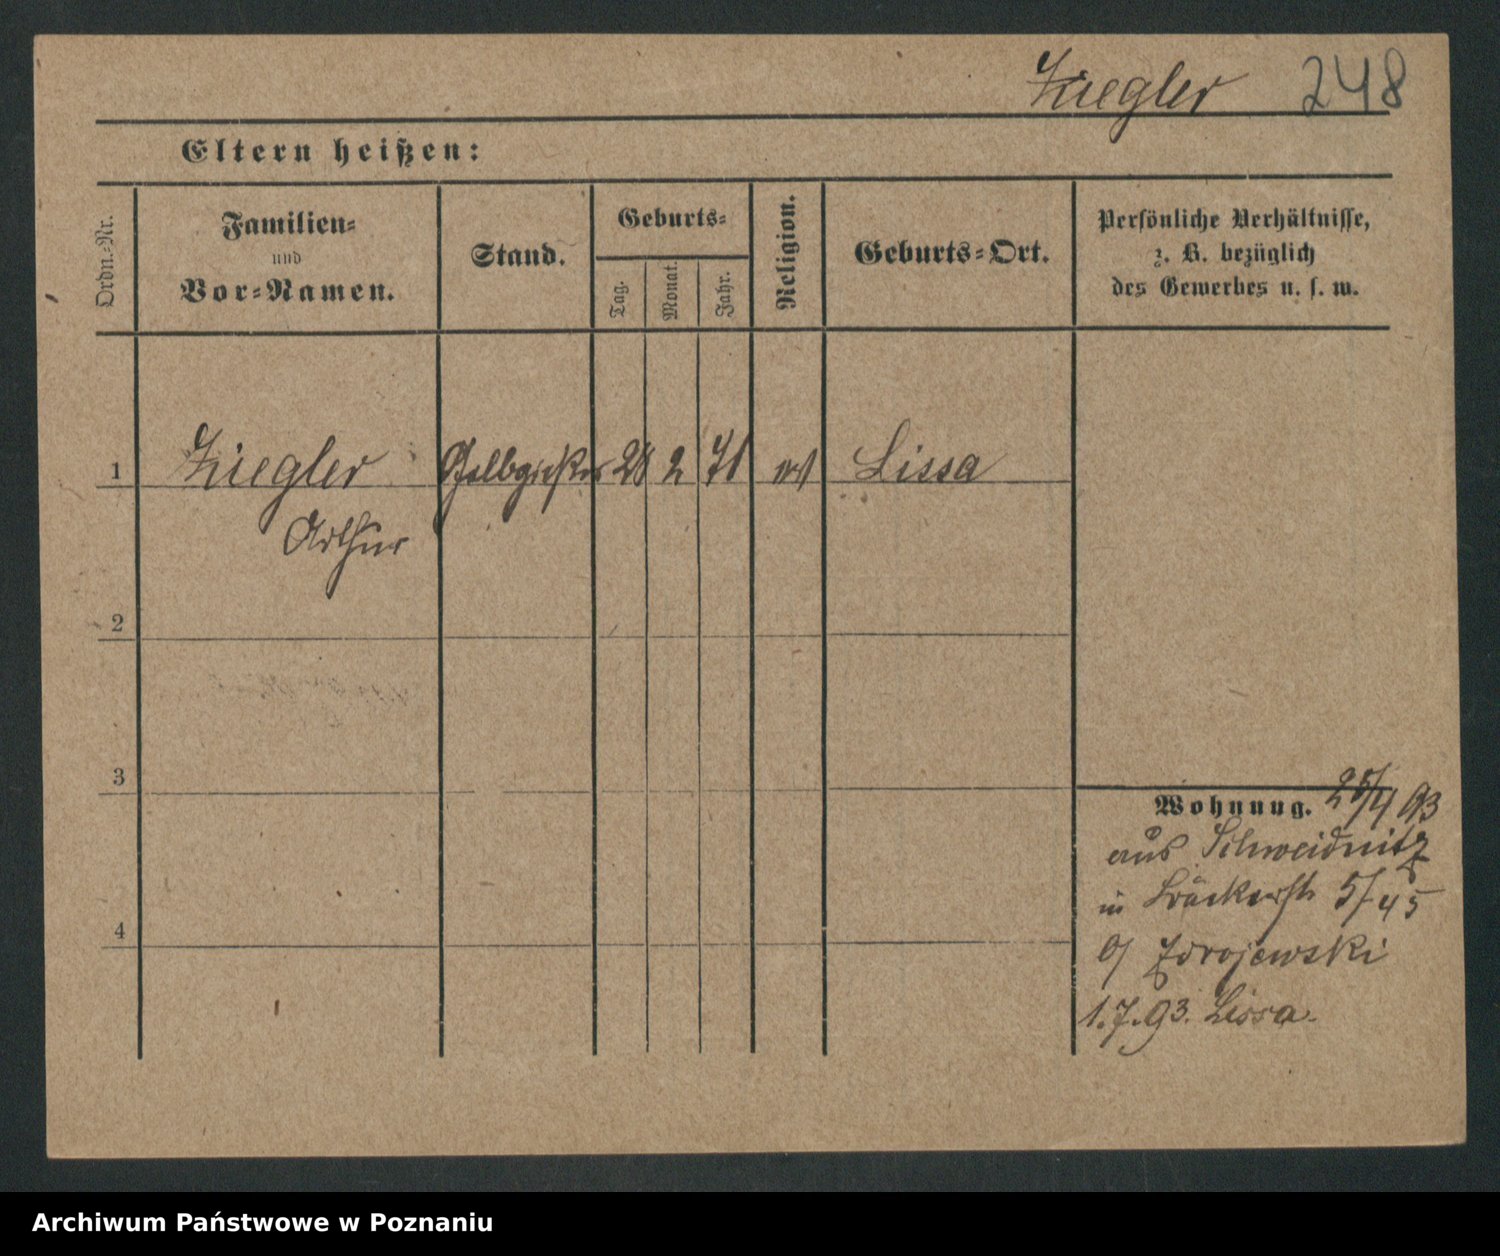 Ziegler 248
Eltern heißen:
Ordn.-Nr.
Familien-
und
Vor-Namen.
Stand.
Geburts-
Tag.
Monat.
Jahr.
Religion.
Geburts-Ort.
Persönliche Verhältnisse,
z. B. bezüglich
des Gewerbes u. s. w.
1 Ziegler Gelbgießer 28 2 71 ev Lissa
Arthur
2
3
4
Wohnung. 25/4 93
aus Schweidnitz
in Bäckerstr 5/45
b/ Zdrojewski
1.7.93. Lissa.
Archiwum Państwowe w Poznaniu